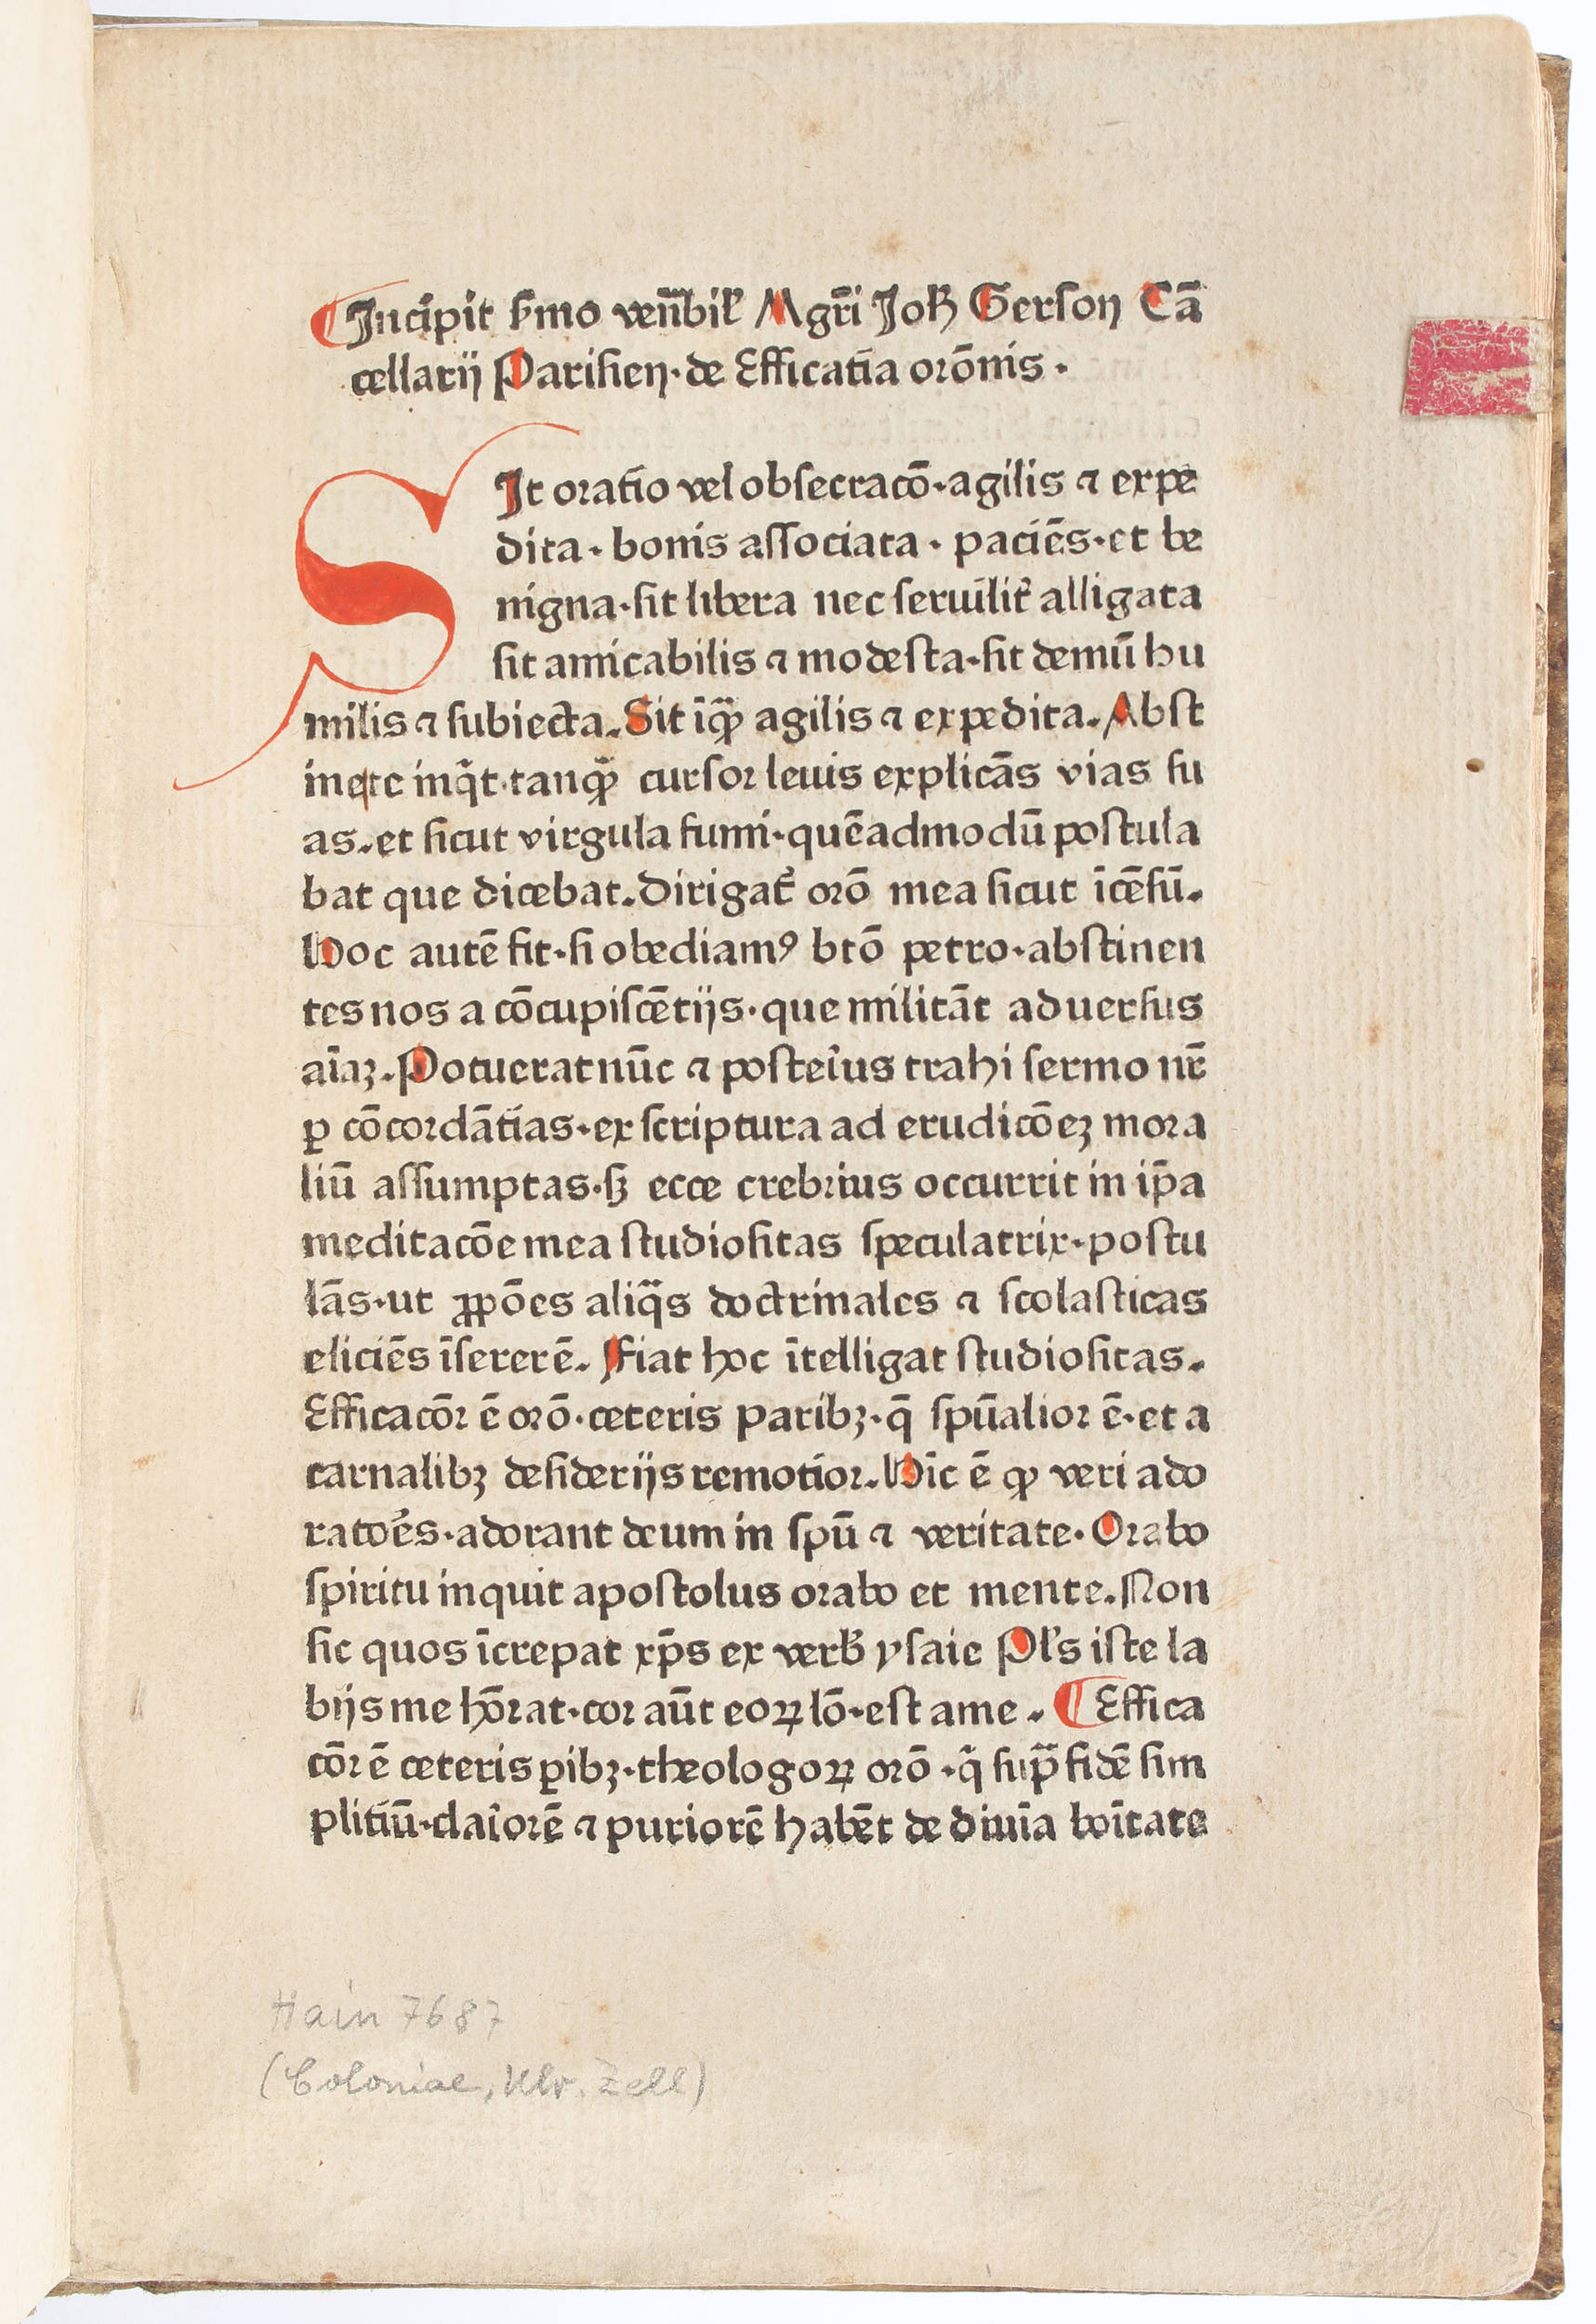 Incipit ẜmo ven̄bil̕ Mgr̄i Joh̕ Gerſon Cā
cellarij Pariſien̄·de Efficatia orōnis·
SIt oratio vel obſecracō·agilis ⁊ expe
dita·bonis aſſociata·paciēs·et be
nigna·ſit libera nec ſeruilit̕ alligata
ſit amicabilis ⁊ modeſta·ſit demū hu
milis ⁊ ſubiecta.Sit īqꝫ agilis ⁊ expedita.Abſt
inete inq̄t·tanqꝫ curſor leuis explicās vias ſu
as.et ſicut virgula fumi·quēadmodū poſtula
bat que dicebat.Dirigat̕ orō mea ſicut īcēſū.
Hoc autē fit·ſi obediamꝰ btō petro·abſtinen
tes nos a cōcupiſcētijs·que militāt aduerſus
aīaꝫ.Potuerat nūc ⁊ poſteīus trahi ſermo nr̄
ꝑ cōcordātias·ex ſcriptura ad erudicōeꝫ mora
liū aſſumptas·ſꝫ ecce crebrius occurrit in ip̄a
meditacōe mea ſtudioſitas ſpeculatrix·poſtu
lās·ut ꝓpōes aliq̄s doctrinales ⁊ ſcolaſticas
eliciēs īſererē. Fiat hoc ītelligat ſtudioſitas.
Efficacōr ē orō·ceteris paribꝫ·q̄ ſpūalior ē·et a
carnalibꝫ deſiderijs remotior.Hīc ē ꝙ veri ado
ratoēs·adorant deum in ſpū ⁊ veritate·Orabo
ſpiritu inquit apoſtolus orabo et mente.Non
ſic quos īcrepat xp̄s ex verb̕ yſaie Pl̕s iſte la
bijs me hōrat·cor aūt eoꝝ lō·eſt a me. ¶ Effica
cōr ē ceteris ꝑibꝫ·theologoꝝ orō·q̄ ſup̄ fidē ſim
plitiū·claīorē ⁊ puriorē habēt de diuīa boītate
Hain 7687
(Coloniae, Ulr. Zell)